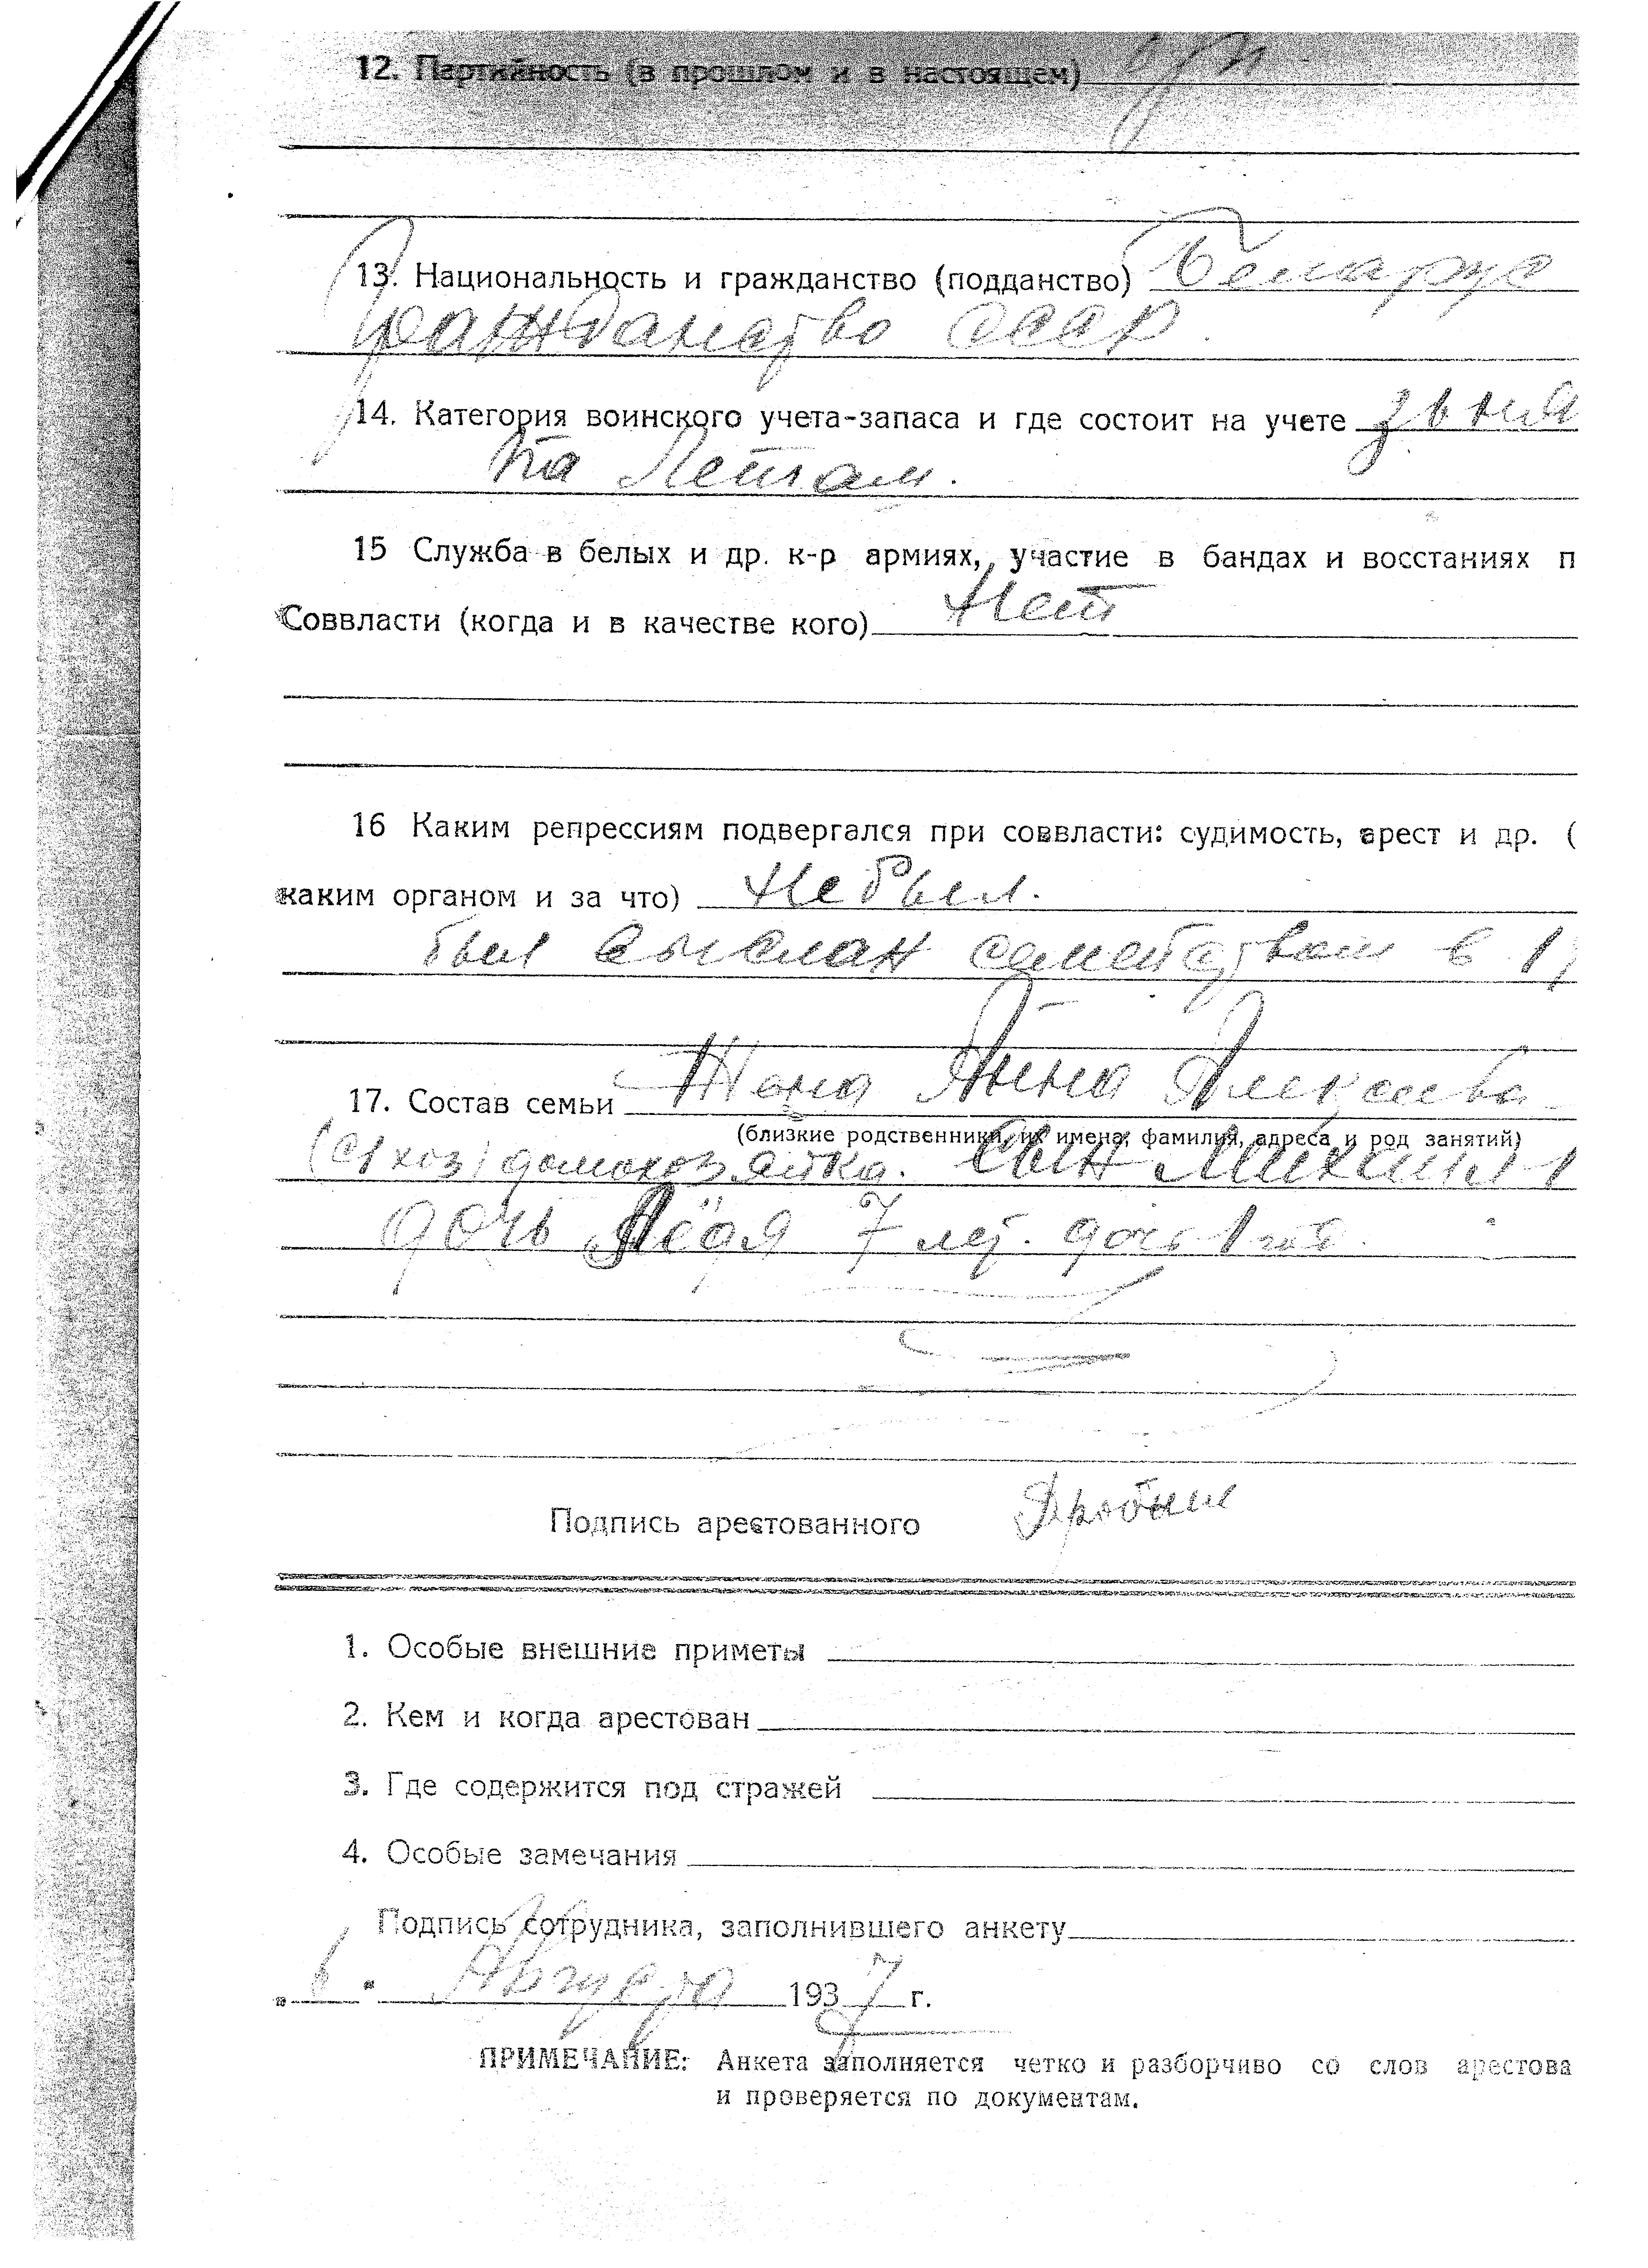 12. Партийность (в прошлом и в настоящем) б/п
13. Национальность и гражданство (подданство) Беларус
Гражданство СССР.
14. Категория воинского учета-запаса и где состоит на учете
по летам.
15 Служба в белых и др. к-р армиях, участие в бандах и восстаниях п
Соввласти (когда и в качестве кого) Нет
16 Каким репрессиям подвергался при соввласти: судимость, арест и др. (
каким органом и за что) Не был.
был выслан семейством в 1
17. Состав семьи Жена Анна Алексеева
(близкие родственники, их имена, фамилия, адреса и род занятий)
домохозяйка. Сын Михаил 1
дочь Лёдя 7 лет. дочь 1 год.
Подпись арестованного
1. Особые внешние приметы
2. Кем и когда арестован
3. Где содержится под стражей
4. Особые замечания
Подпись сотрудника, заполнившего анкету
„6" Августа 1937 г.
ПРИМЕЧАНИЕ: Анкета заполняется четко и разборчиво со слов арестова
и проверяется по документам.